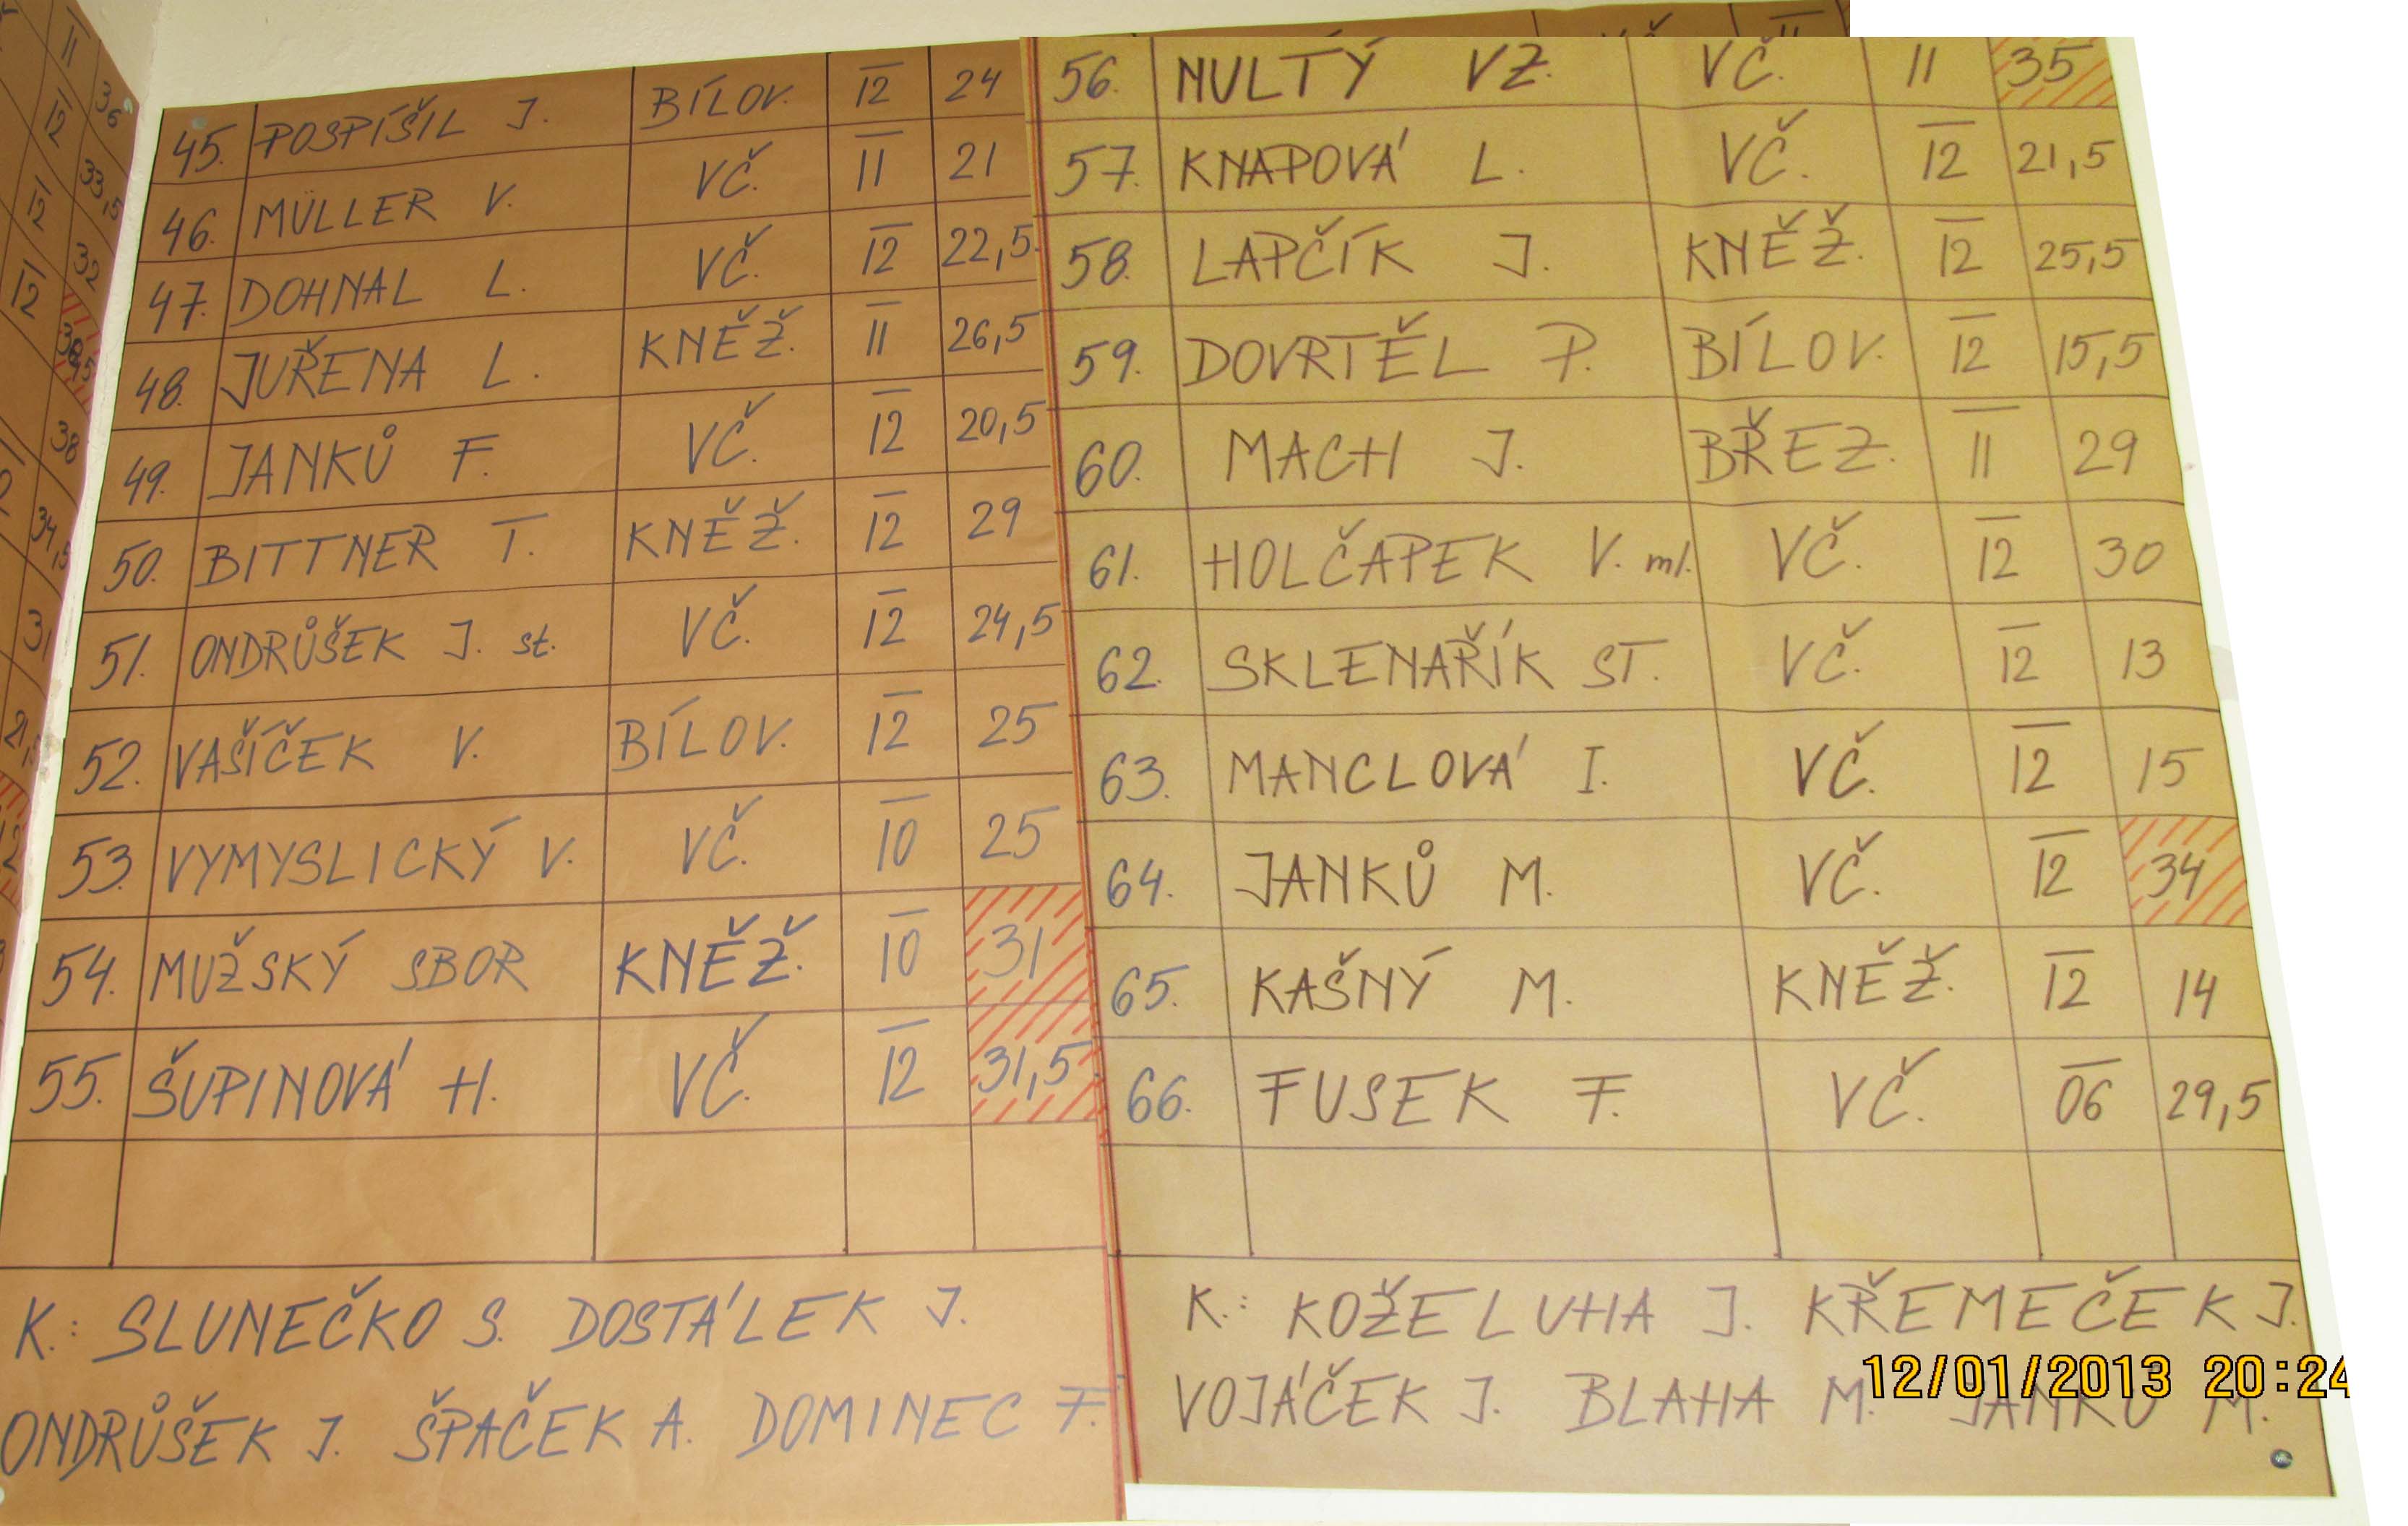 45. POSPÍŠIL J. BÍLOV. 12 24
46. MÜLLER V. VČ. 11 21
47. DOHNAL L. VČ. 12 22,5
48. JUŘENA L. KNĚŽ. 11 26,5
49. JANKŮ F. VČ. 12 20,5
50. BITTNER T. KNĚŽ. 12 29
51. ONDRŮŠEK J. st. VČ. 12 24,5
52. VAŠÍČEK V. BÍLOV. 12 25
53. VYMYSLICKÝ V. VČ. 10 25
54. MUŽSKÝ SBOR KNĚŽ. 10 31
55. ŠUPINOVÁ H. VČ. 12 31,5
K.: SLUNEČKO S. DOSTÁLEK J.
ONDRŮŠEK J. ŠPAČEK A. DOMINEC F.
56. NULTÝ VZ. VČ. 11 35
57. KNAPOVÁ L. VČ. 12 21,5
58. LAPČÍK J. KNĚŽ. 12 25,5
59. DOVRTĚL P. BÍLOV. 12 15,5
60. MACH J. BŘEZ. 11 29
61. HOLČAPEK V. ml. VČ. 12 30
62. SKLENAŘÍK ST. VČ. 12 13
63. MANCLOVÁ I. VČ. 12 15
64. JANKŮ M. VČ. 12 34
65. KAŠNÝ M. KNĚŽ. 12 14
66. FUSEK F. VČ. 06 29,5
K.: KOŽELUHA J. KŘEMEČEK J.
VOJÁČEK J. BLAHA M. JANKŮ M.
12/01/2013 20:24
11 36
12 33,5
12 32
12
38
34,5
31